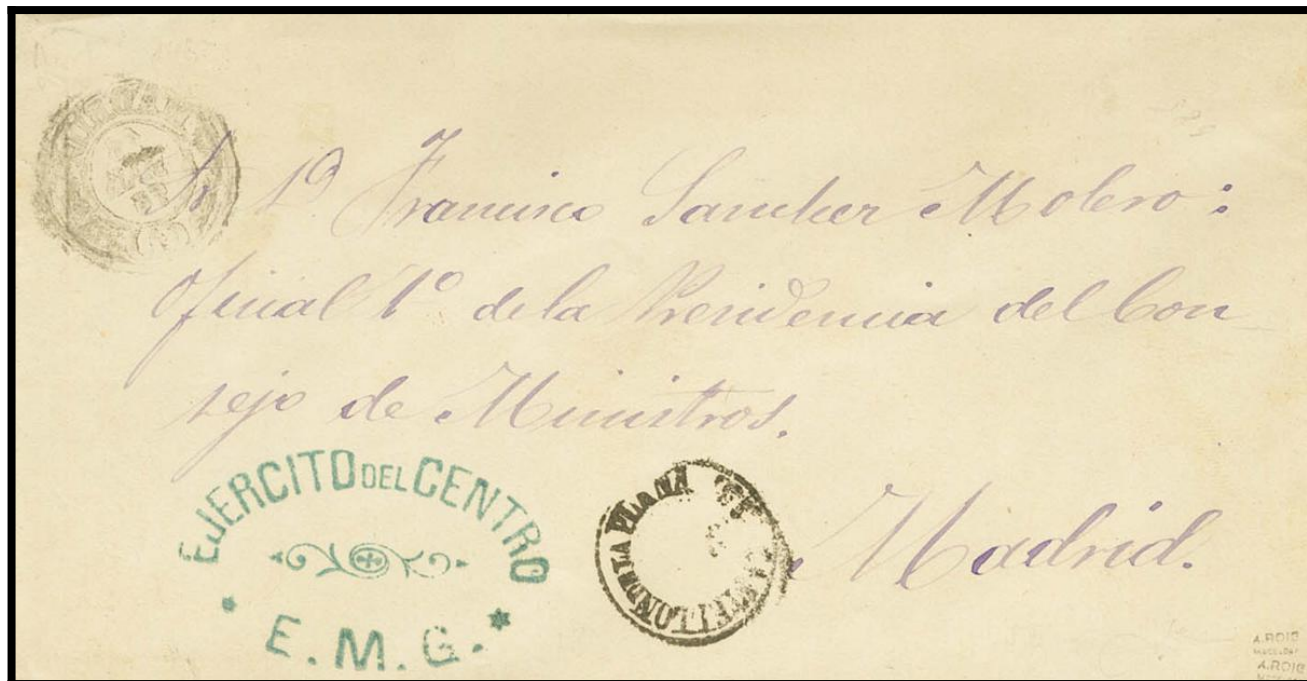 Sr D. Francisco Sanchez Molero:
Oficial 1º de la Presidencia del Con
sejo de Ministros.
Madrid.
EJERCITO DEL CENTRO
E. M. G.
CASTELLON DE LA PLANA
A.ROIG
A.ROIG